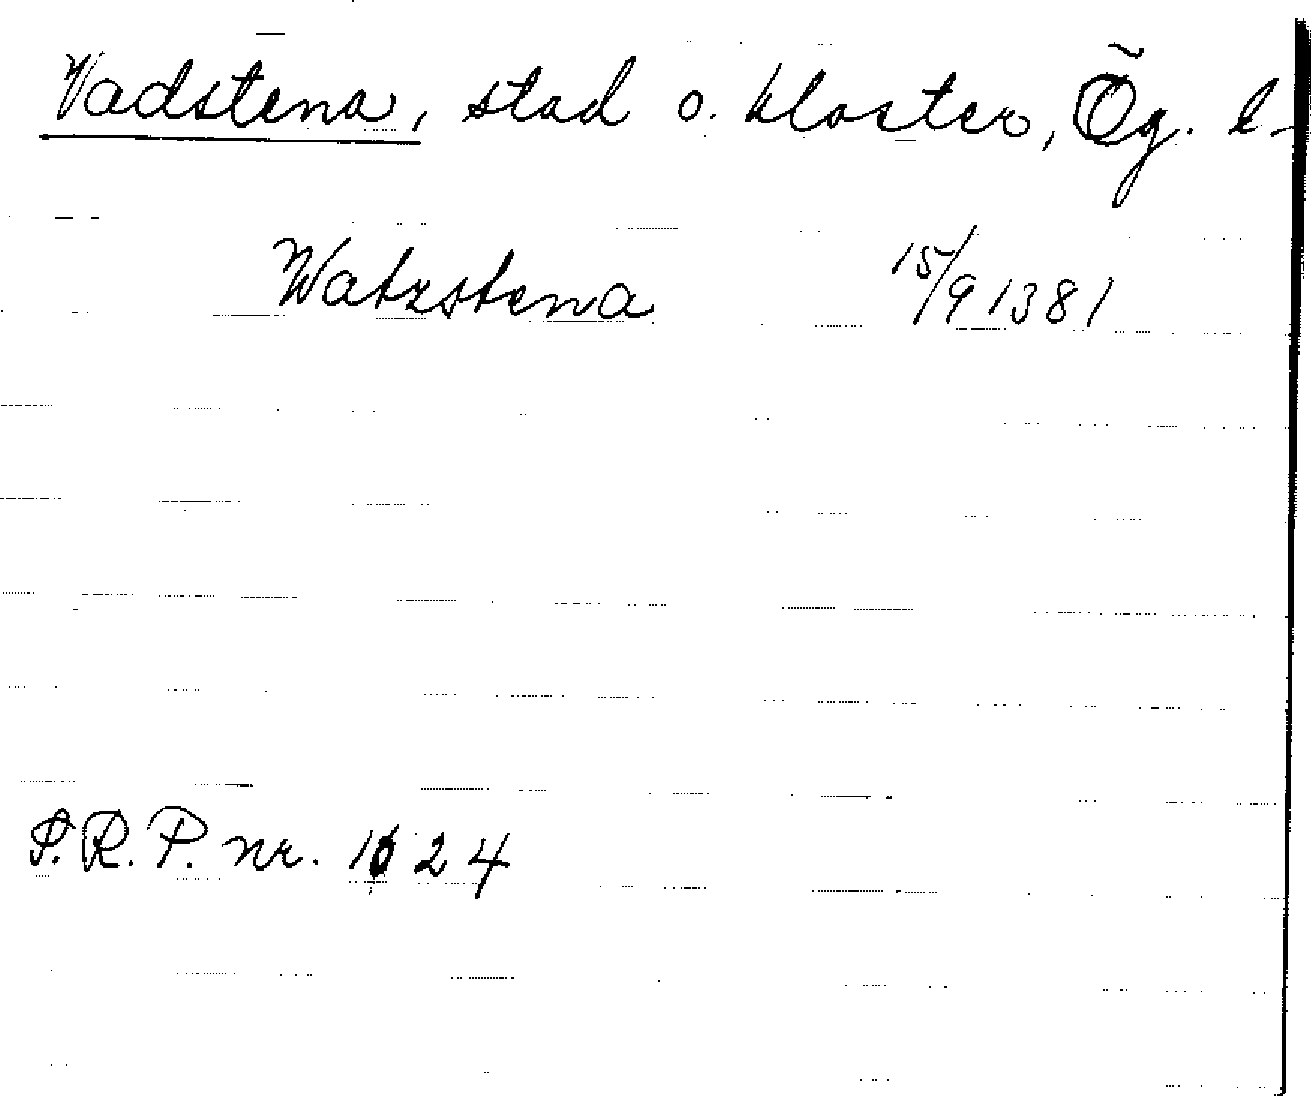 Vadstena, stad o. kloster, Ög. l
Watzstena 15/9 1381
S.R.P. nr. 1624